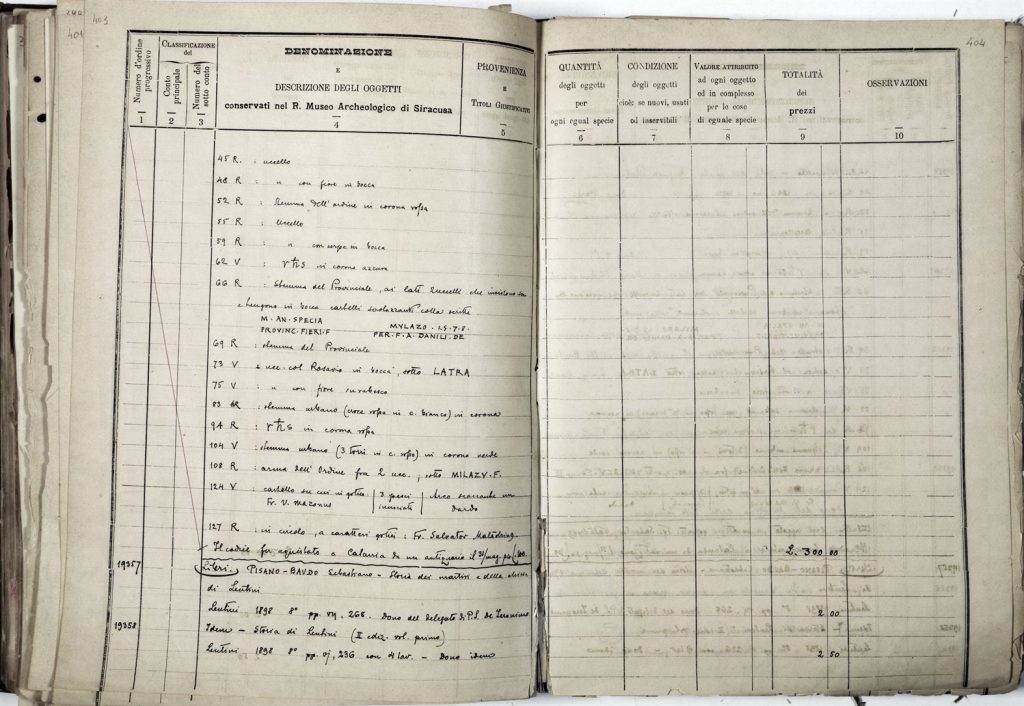 401
403
404
Numero d'ordine progressivo
CLASSIFICAZIONE
del
Conto principale
Numero del sotto conto
DENOMINAZIONE
E
DESCRIZIONE DEGLI OGGETTI
conservati nel R. Museo Archeologico di Siracusa
PROVENIENZA
E
TITOLI GIUSTIFICATIVI
QUANTITÀ
degli oggetti
per
ogni egual specie
CONDIZIONE
degli oggetti
cioè: se nuovi, usati
od inservibili
VALORE ATTRIBUITO
ad ogni oggetto
ed in complesso
per le cose
di eguale specie
TOTALITÀ
dei
prezzi
OSSERVAZIONI
1 2 3 4 5 6 7 8 9 10
45 R. : uccello
48 R : " con fiore in bocca
52 R : stemma dell'ordine in corona rossa
55 R : uccello
59 R : " con serpe in bocca
62 V : yhs in corona azzurra
66 R : stemma del Provinciale, ai lati 2 uccelli che
e tengono in bocca cartelli svolazzanti colla scritta
M. AN. SPECIA MYLAZO. 1.5.7.8.
PROVINC. FIERI. F PER. F. A. DANILI. DE
69 R : stemma del Provinciale
73 V : ucc. col Rosario in bocca, sotto LATRA
75 V : " con fiore
83 R : stemma urbano (croce rossa in c. bianco) in corona
94 R : yhs in corona rossa
104 V : stemma urbano (3 torri in c. rosso) in corona verde
108 R : arma dell'Ordine fra 2 ucc., sotto MILAZV. F.
124 V : cartello su cui in gotico | 3 pesci | Arco scoccante un
Fr. V. Mazonus | incrociati | dardo
127 R : in circolo, a caratteri gotici : Fr. Salvator
Il codice fu acquistato a Catania da un antiquario il L. 300 00
19357 Libri. PISANO-BAUDO Sebastiano - Storia dei martiri e della chiesa
di Lentini
Lentini 1898 8° pp. vij, 268. Dono del Delegato di P.S. de Jeronimo 2 00
19358 Idem - Storia di Lentini (II ediz. vol. primo)
Lentini 1898 8° pp. vj, 236 con 4 tav. - Dono idem 2 50